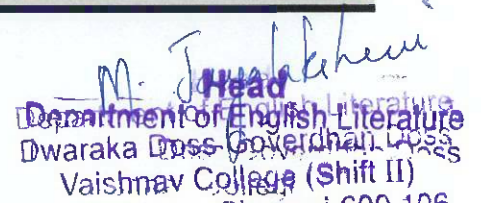 Head
Department of English Literature
Dwaraka Doss Goverdhan Doss
Vaishnav College (Shift II)
600 106